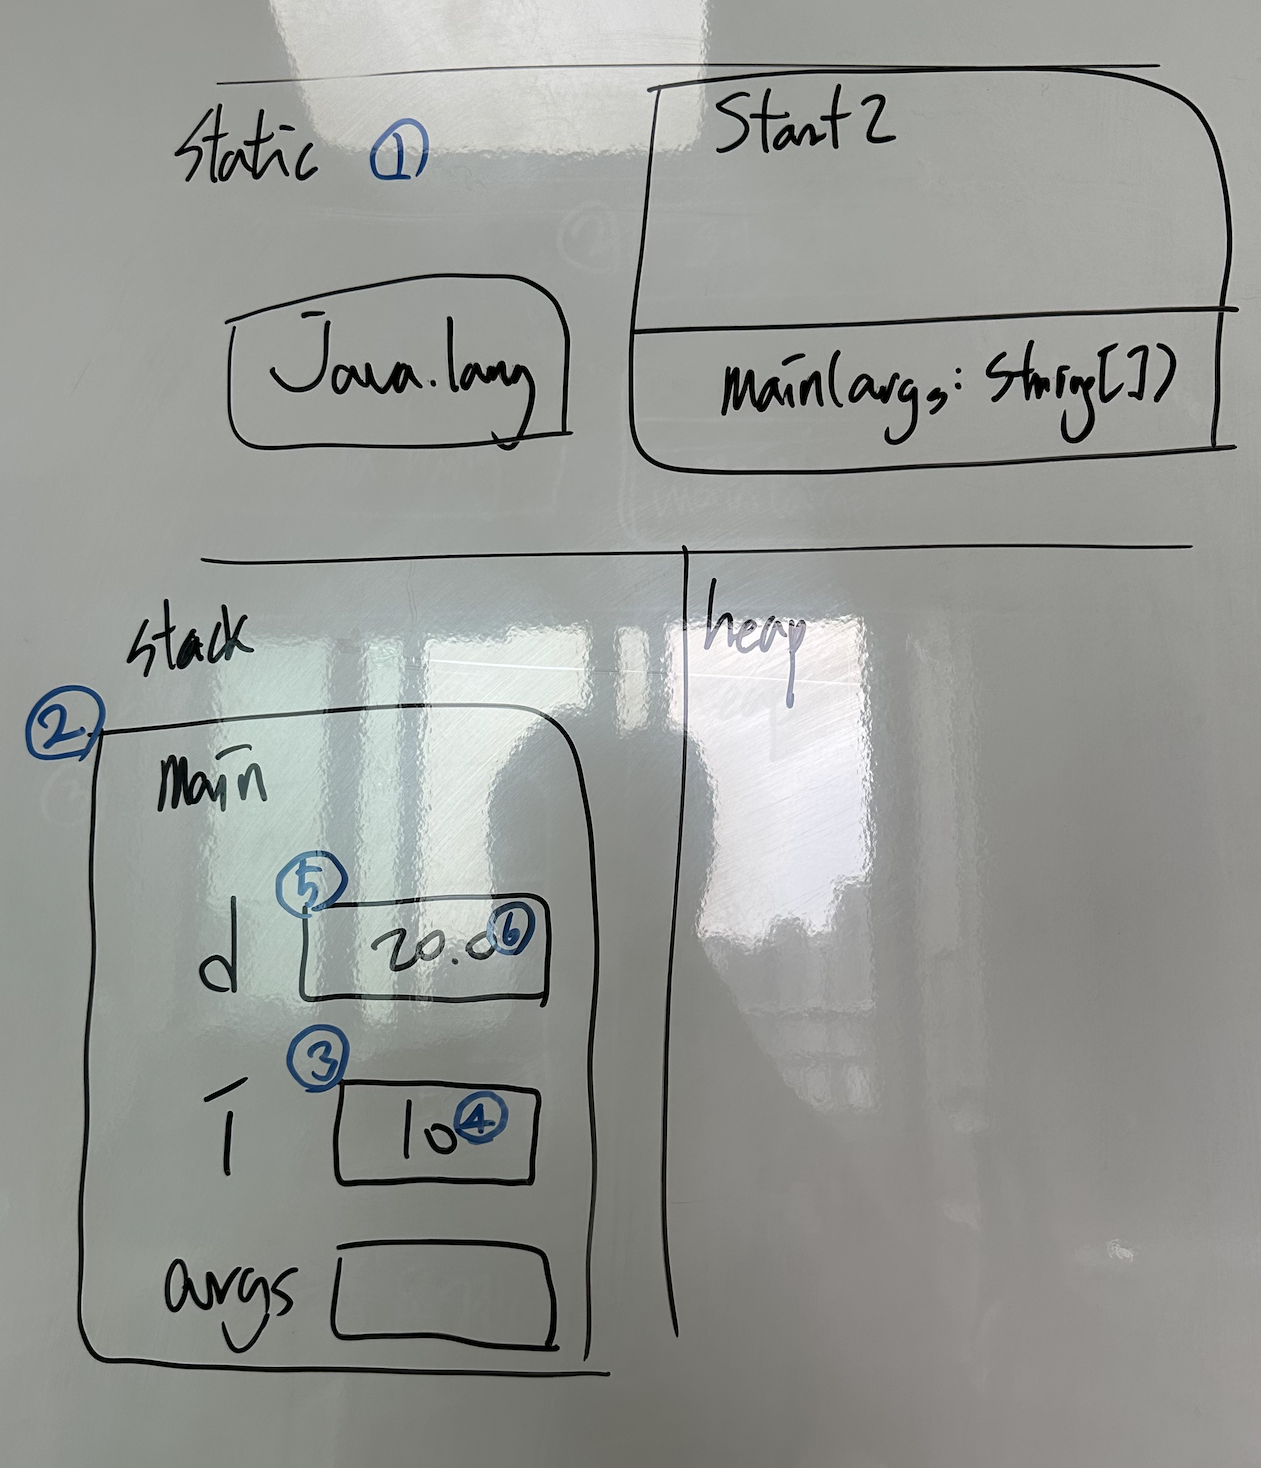 Static ①
Start2
Java.lang
main(args: String[])
stack
heap
②
main
⑤
d 20.0 ⑥
③
i 10 ④
args